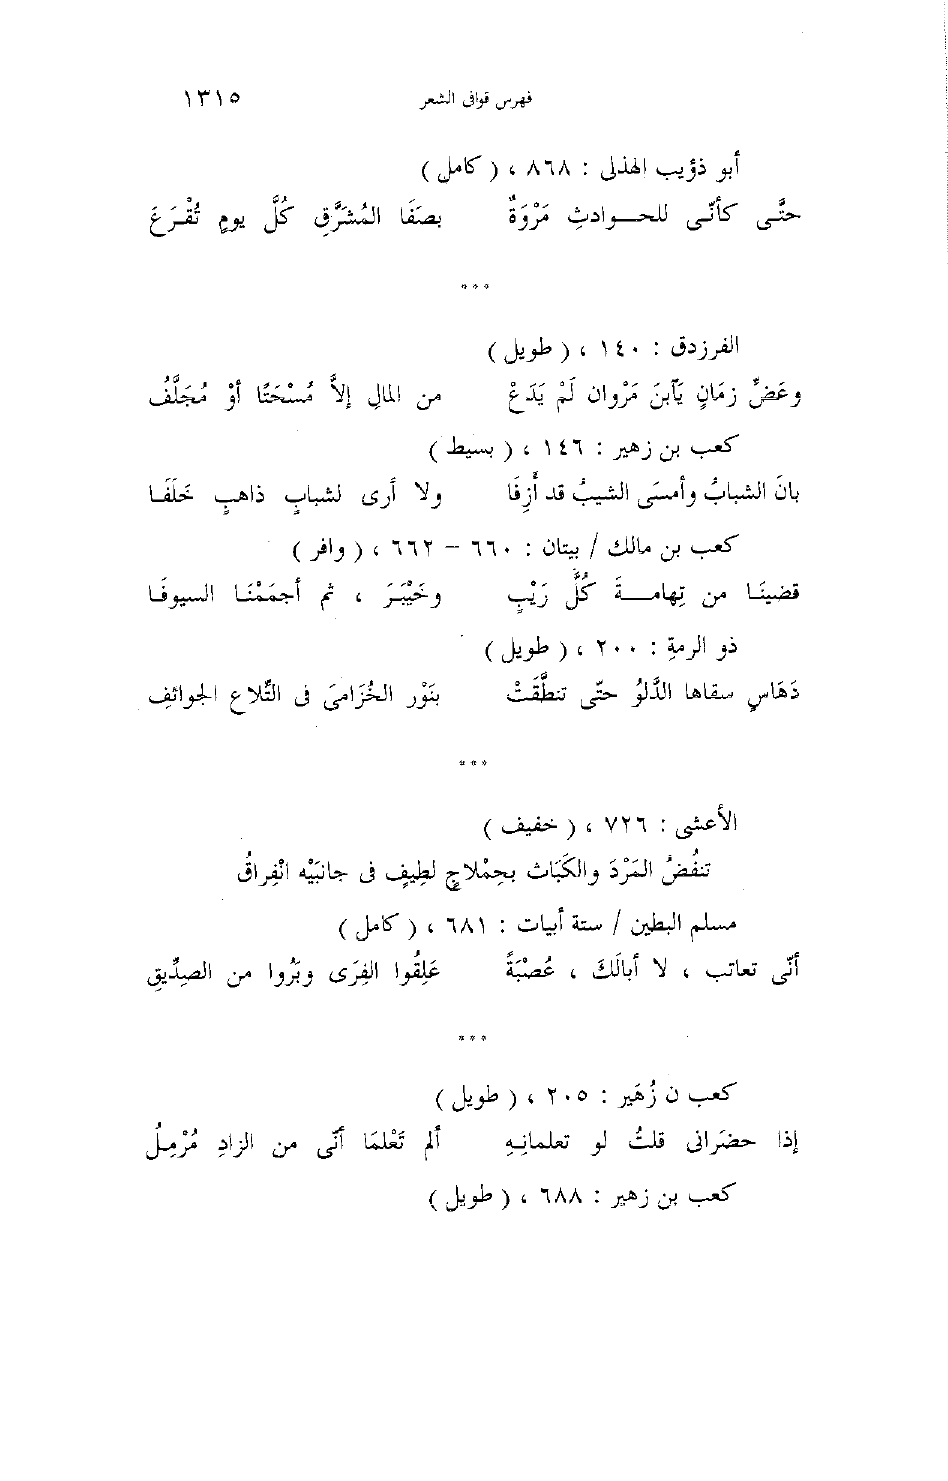 فهرس قوافى الشعر ١٣١٥
أبو ذؤيب الهذلى : ٨٦٨ ، ( كامل )
حتَّى كأنّى للحـوادثِ مَرْوَةٌ بصَفَا المُشَرَّقِ كُلَّ يومٍ تُقْرَعَ
***
الفرزدق : ١٤٠ ، ( طويل )
وعَضِّ زمَانٍ يَآبنَ مَرْوان لَمْ يَدَعْ من المالِ إلاَّ مُسْحَتًا أوْ مُجَلَّفُ
كعب بن زهير : ١٤٦ ، ( بسيط )
بانَ الشبابُ وأمسَى الشيبُ قد أَزِفَا ولا أرى لشبابٍ ذاهبٍ خَلَفَا
كعب بن مالك / بيتان : ٦٦٠ – ٦٦٢ ، ( وافر )
قضينَا من تِهامـةَ كُلَّ رَيْبٍ وخَيْبَرَ ، ثم أجمَمْنَا السيوفَا
ذو الرمةِ : ٢٠٠ ، ( طويل )
دَهَاسٍ سقاها الدَّلوُ حتّى تنطَّقَتْ بنَوْر الخُزامَى فى التِّلاع الجوائفِ
***
الأعشى : ٧٢٦ ، ( خفيف )
تنفُضُ المَرْدَ والكَبَاثَ بحِمْلاجٍ لطِيفٍ فى جانبَيْه انْفِراقُ
مسلم البطين / ستة أبيات : ٦٨١ ، ( كامل )
أنّى تعاتب ، لا أبالَكَ ، عُصْبَةً عَلِقُوا الفِرَى وبَرُوا من الصدِّيقِ
***
كعب ن زُهَير : ٢٠٥ ، ( طويل )
إذا حضَرانى قلتُ لو تعلمانِهِ ألم تَعْلمَا أنّى من الزادِ مُرْمِلُ
كعب بن زهير : ٦٨٨ ، ( طويل )